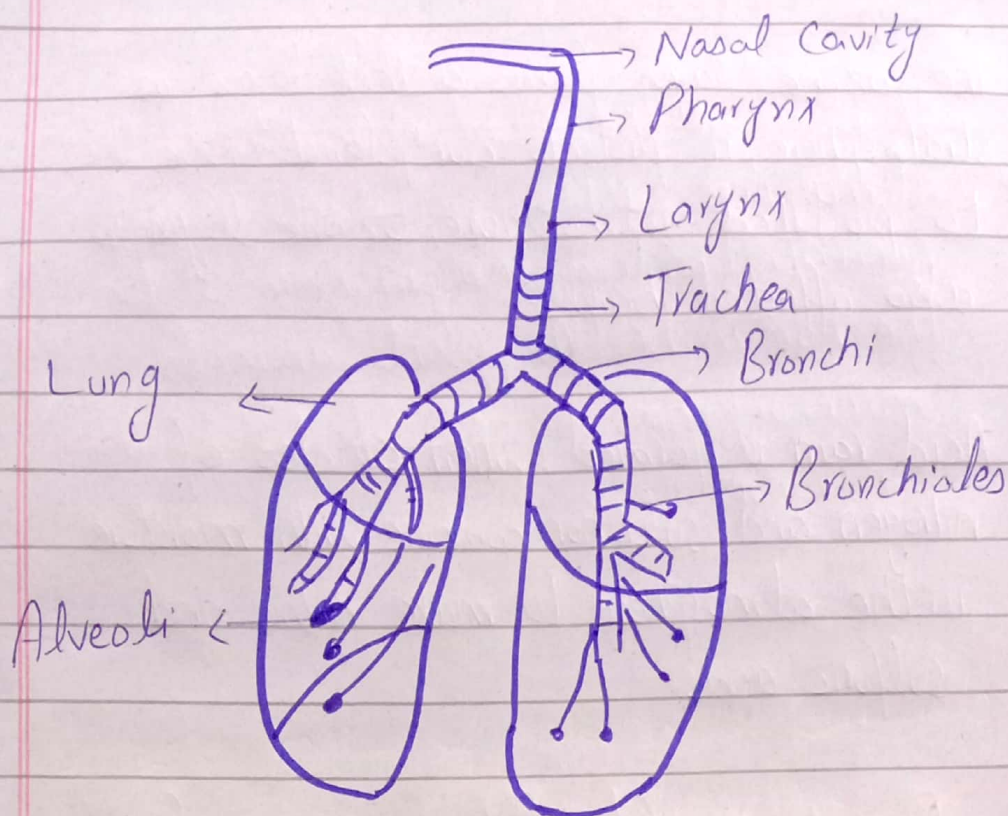 Nasal Cavity
Pharynx
Larynx
Trachea
Bronchi
Lung
Bronchioles
Alveoli